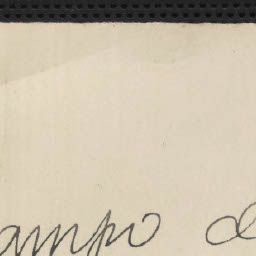 ampo d